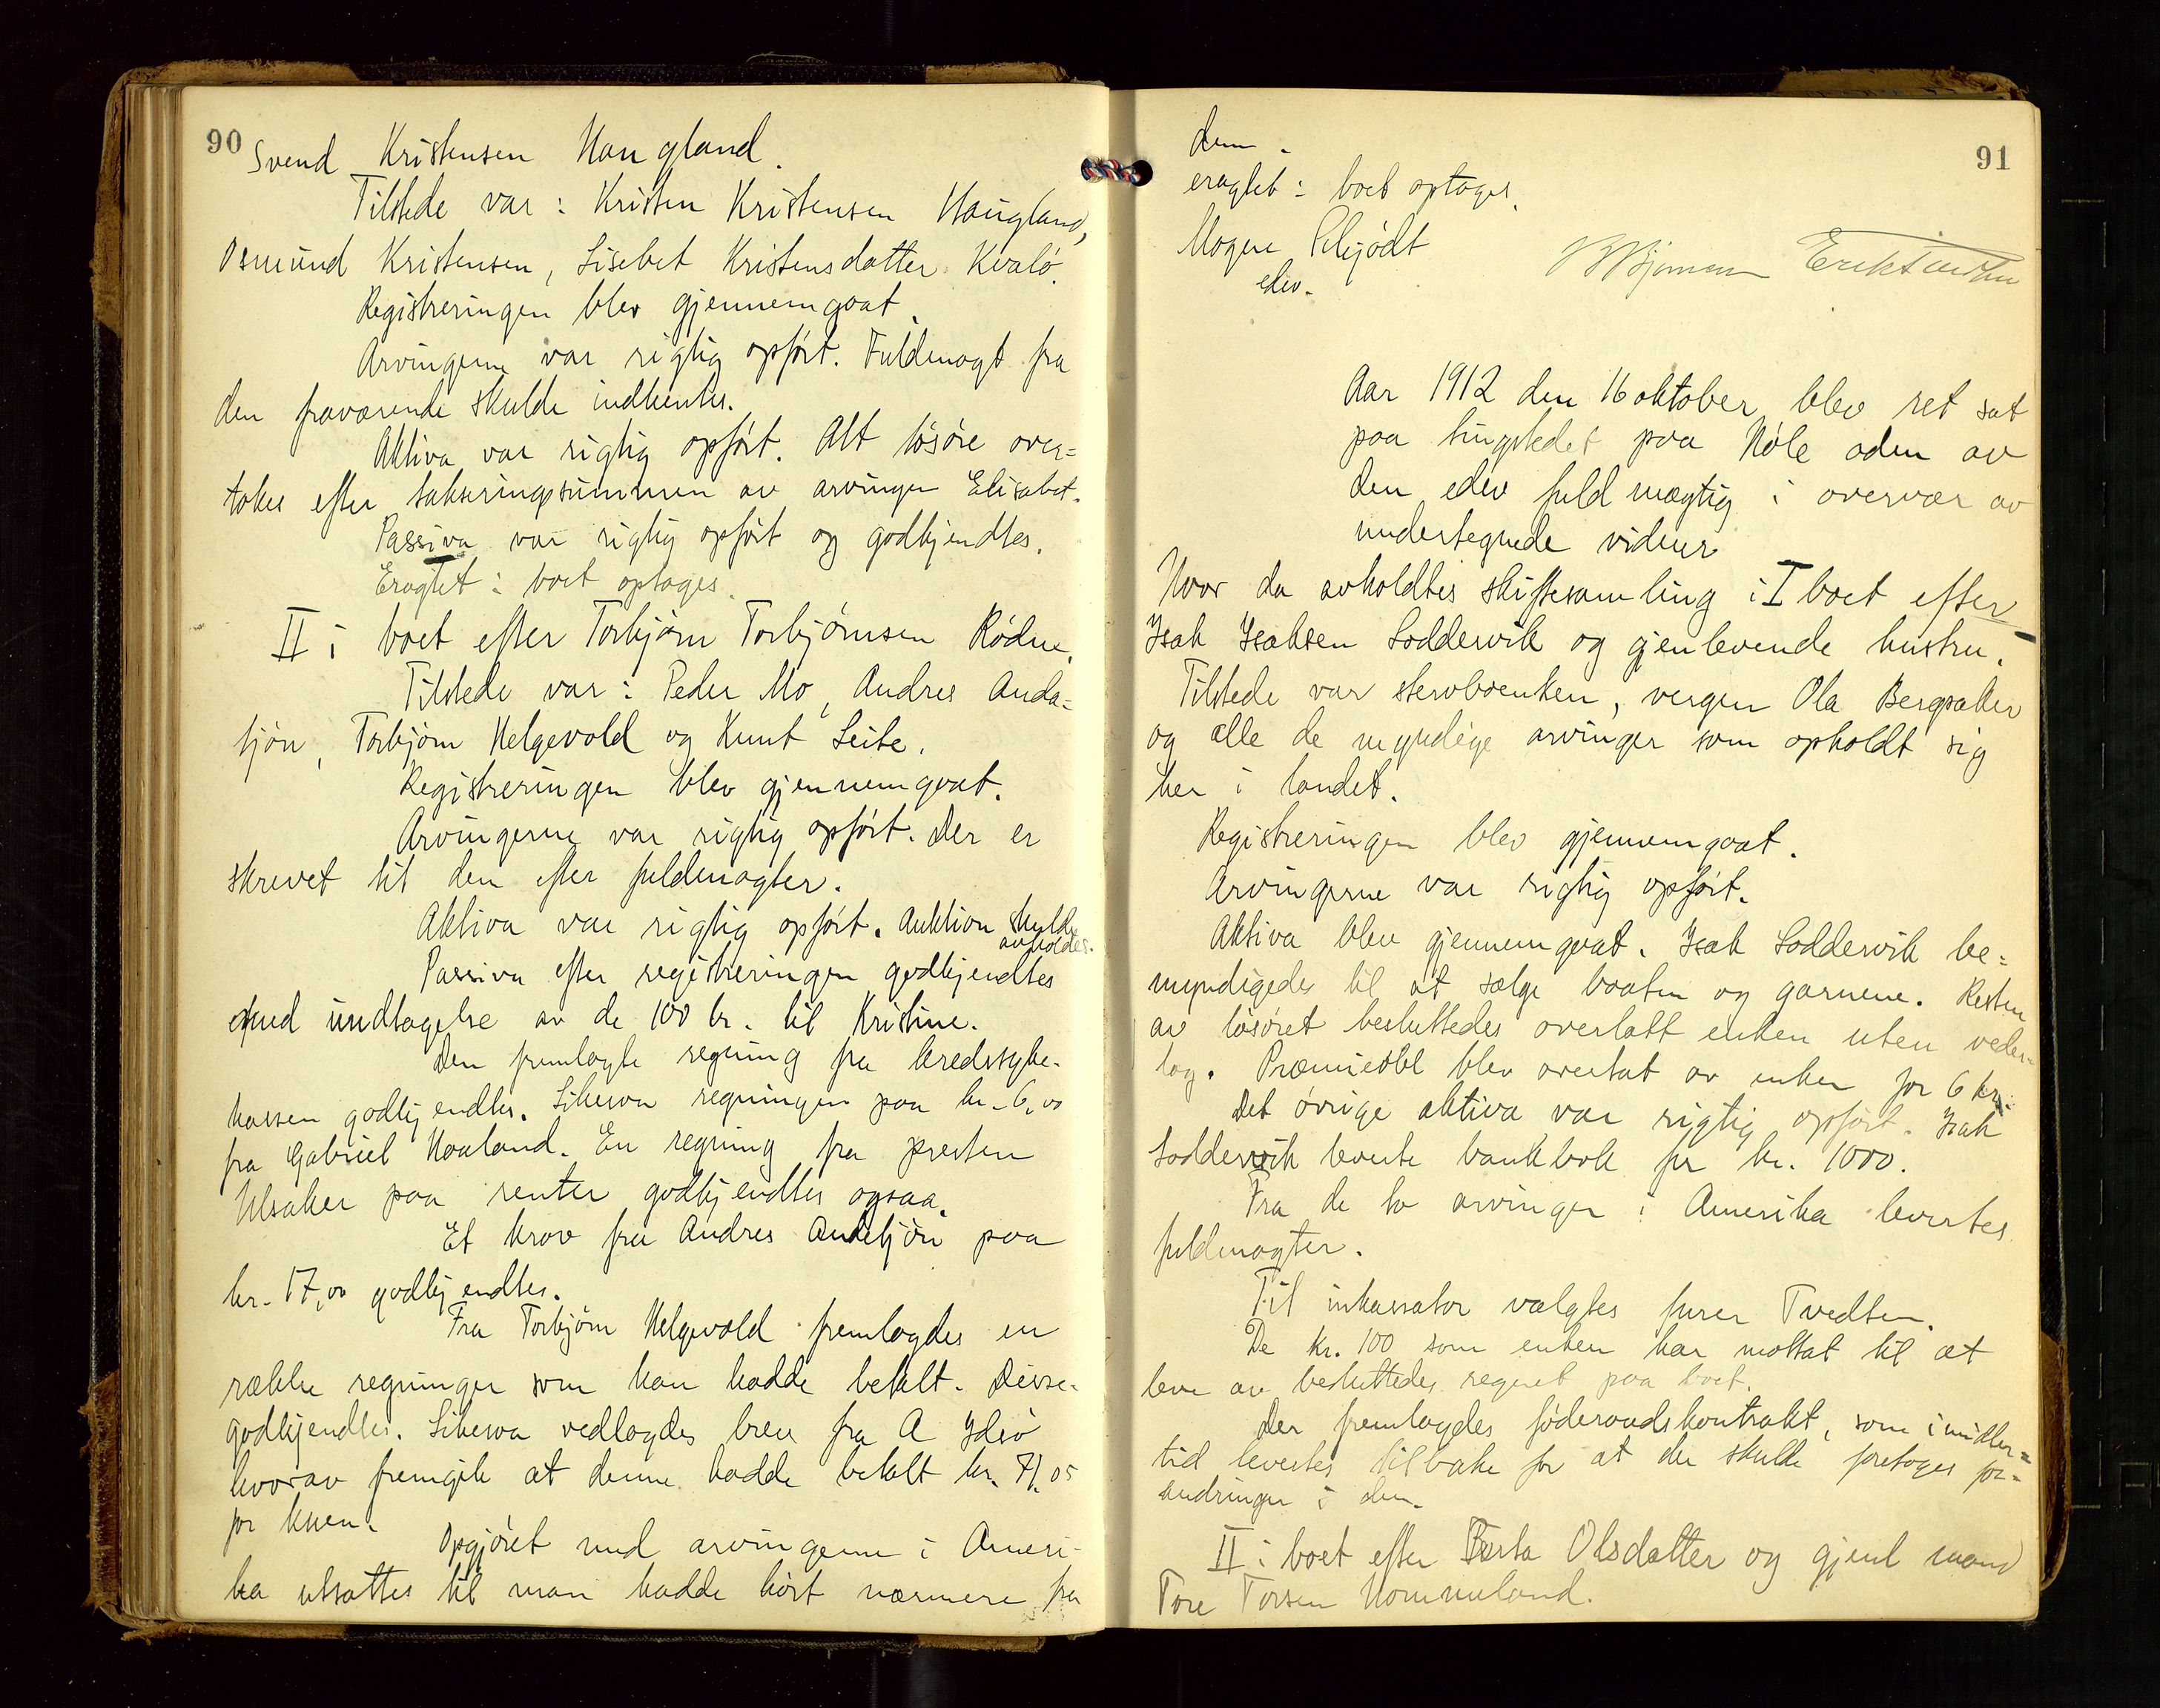 90
Svend Kristensen Haugland.
Tilstede var: Kristen Kristensen Haugland,
Osmund Kristensen, Lisebet Kristensdatter Kvalø.
Registreringen blev gjennemgaat.
Arvingerne var rigtig opført. Fuldmagt fra
den fraværende skulde indhentes.
Aktiva var rigtig opført. Alt løsøre over-
tokes efter takseringssummen av arvingen Elisabet.
Passiva var rigtig opført og godkjendtes.
Eragtet: boet optages.
II i boet efter Torbjørn Torbjørnsen Rødne.
Tilstede var: Peder Mo, Andres Anda-
tjøn, Torbjørn Helgevold og Knut Leite.
Registreringen blev gjennemgaat.
Arvingerne var rigtig opført. Der er
skrevet til den efter fuldmagter.
Aktiva var rigtig opført. Auktion skulde
avholdes.
Passiva efter registreringen godkjendtes
med undtagelse av de 100 kr. til Kristine.
Den fremlagte regning fra kredssyke-
kassen godkjendtes. Likesaa regningen paa kr. 6,00
fra Gabriel Haaland. En regning fra presten
Ulsaker paa renter godkjendtes ogsaa.
Et krav fra Andres Andatjøn paa
kr. 17,00 godkjendtes.
Fra Torbjørn Helgevold fremlagdes en
række regninger som han hadde betalt. Disse
godkjendtes. Likesaa vedlagdes brev fra A Idsø
hvorav fremgik at denne hadde betalt kr. 71.05
for kuen.
Opgjøret med arvingerne i Ameri-
ka utsattes til man hadde hørt nærmere fra
91
dem.
eragtet: boet optages.
Mogens Schjødt
edsv.
Aar 1912 den 16 oktober blev ret sat
paa tingstedet paa Høle aden av
den edsv fuldmægtig i overvær av
undertegnede vidner
Hvor da avholdtes skiftesamling i I boet efter
Isak Isaksen Loddervik og gjenlevende hustru.
Tilstede var stervboenken, vergen Ola Bergsaker
og alle de myndige arvinger som opholdt sig
her i landet.
Registreringen blev gjennemgaat.
Arvingerne var rigtig opført.
Aktiva blev gjennemgaat. Isak Loddervik be-
myndigedes til at sælge baaten og garnene. Resten
av løsøret besluttedes overlatt enken uten veder-
lag. Præmieobl blev overtat av enken for 6 kr.
Det øvrige aktiva var rigtig opført. Isak
Loddervik leverte bankbok for kr. 1000.
Fra de to arvinger i Amerika levertes
fuldmagter.
Til inkassator valgtes furer Tvedten.
De kr. 100 som enken har mottat til at
leve av besluttedes regnet paa boet.
Der fremlagdes føderaadskontrakt, som imidler-
tid levertes tilbake for at der skulde foretages for-
andringer i den.
II i boet efter Berta Olsdatter og gjenl mand
Tore Torsen Hommeland.